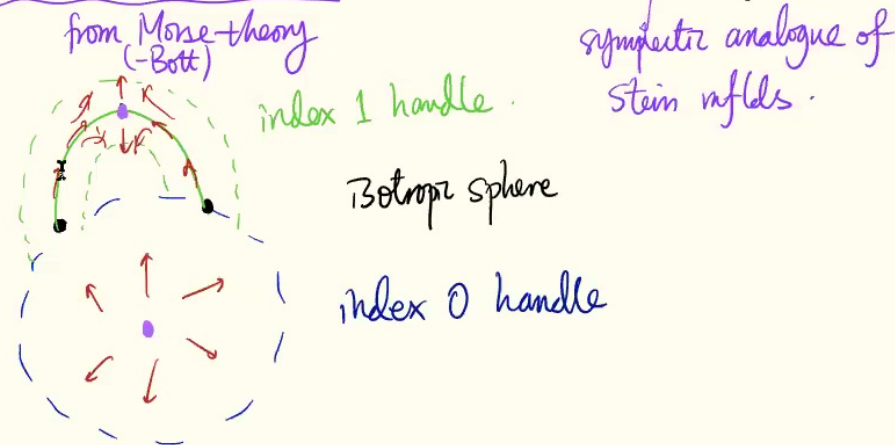 from Morse-theory
(-Bott)
symplectic analogue of
Stein mflds.
index 1 handle.
Isotropic sphere
index 0 handle